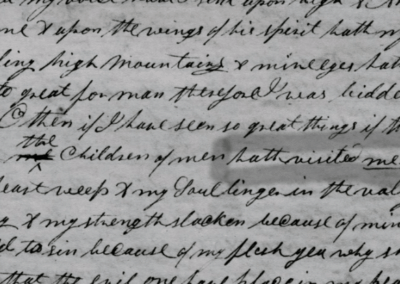 my voice upon high &
me & upon the wings of his spirit hath my
ding high mountains & mine eyes hath
to great for man therefore I was bidd
O then if I have seen so great things if th
the
Children of men hath visited me
heart weep & my Soul linger in the val
& my strength slacken because of mine
to sin because of my flesh yea why sh
that the evil one have place in my hea